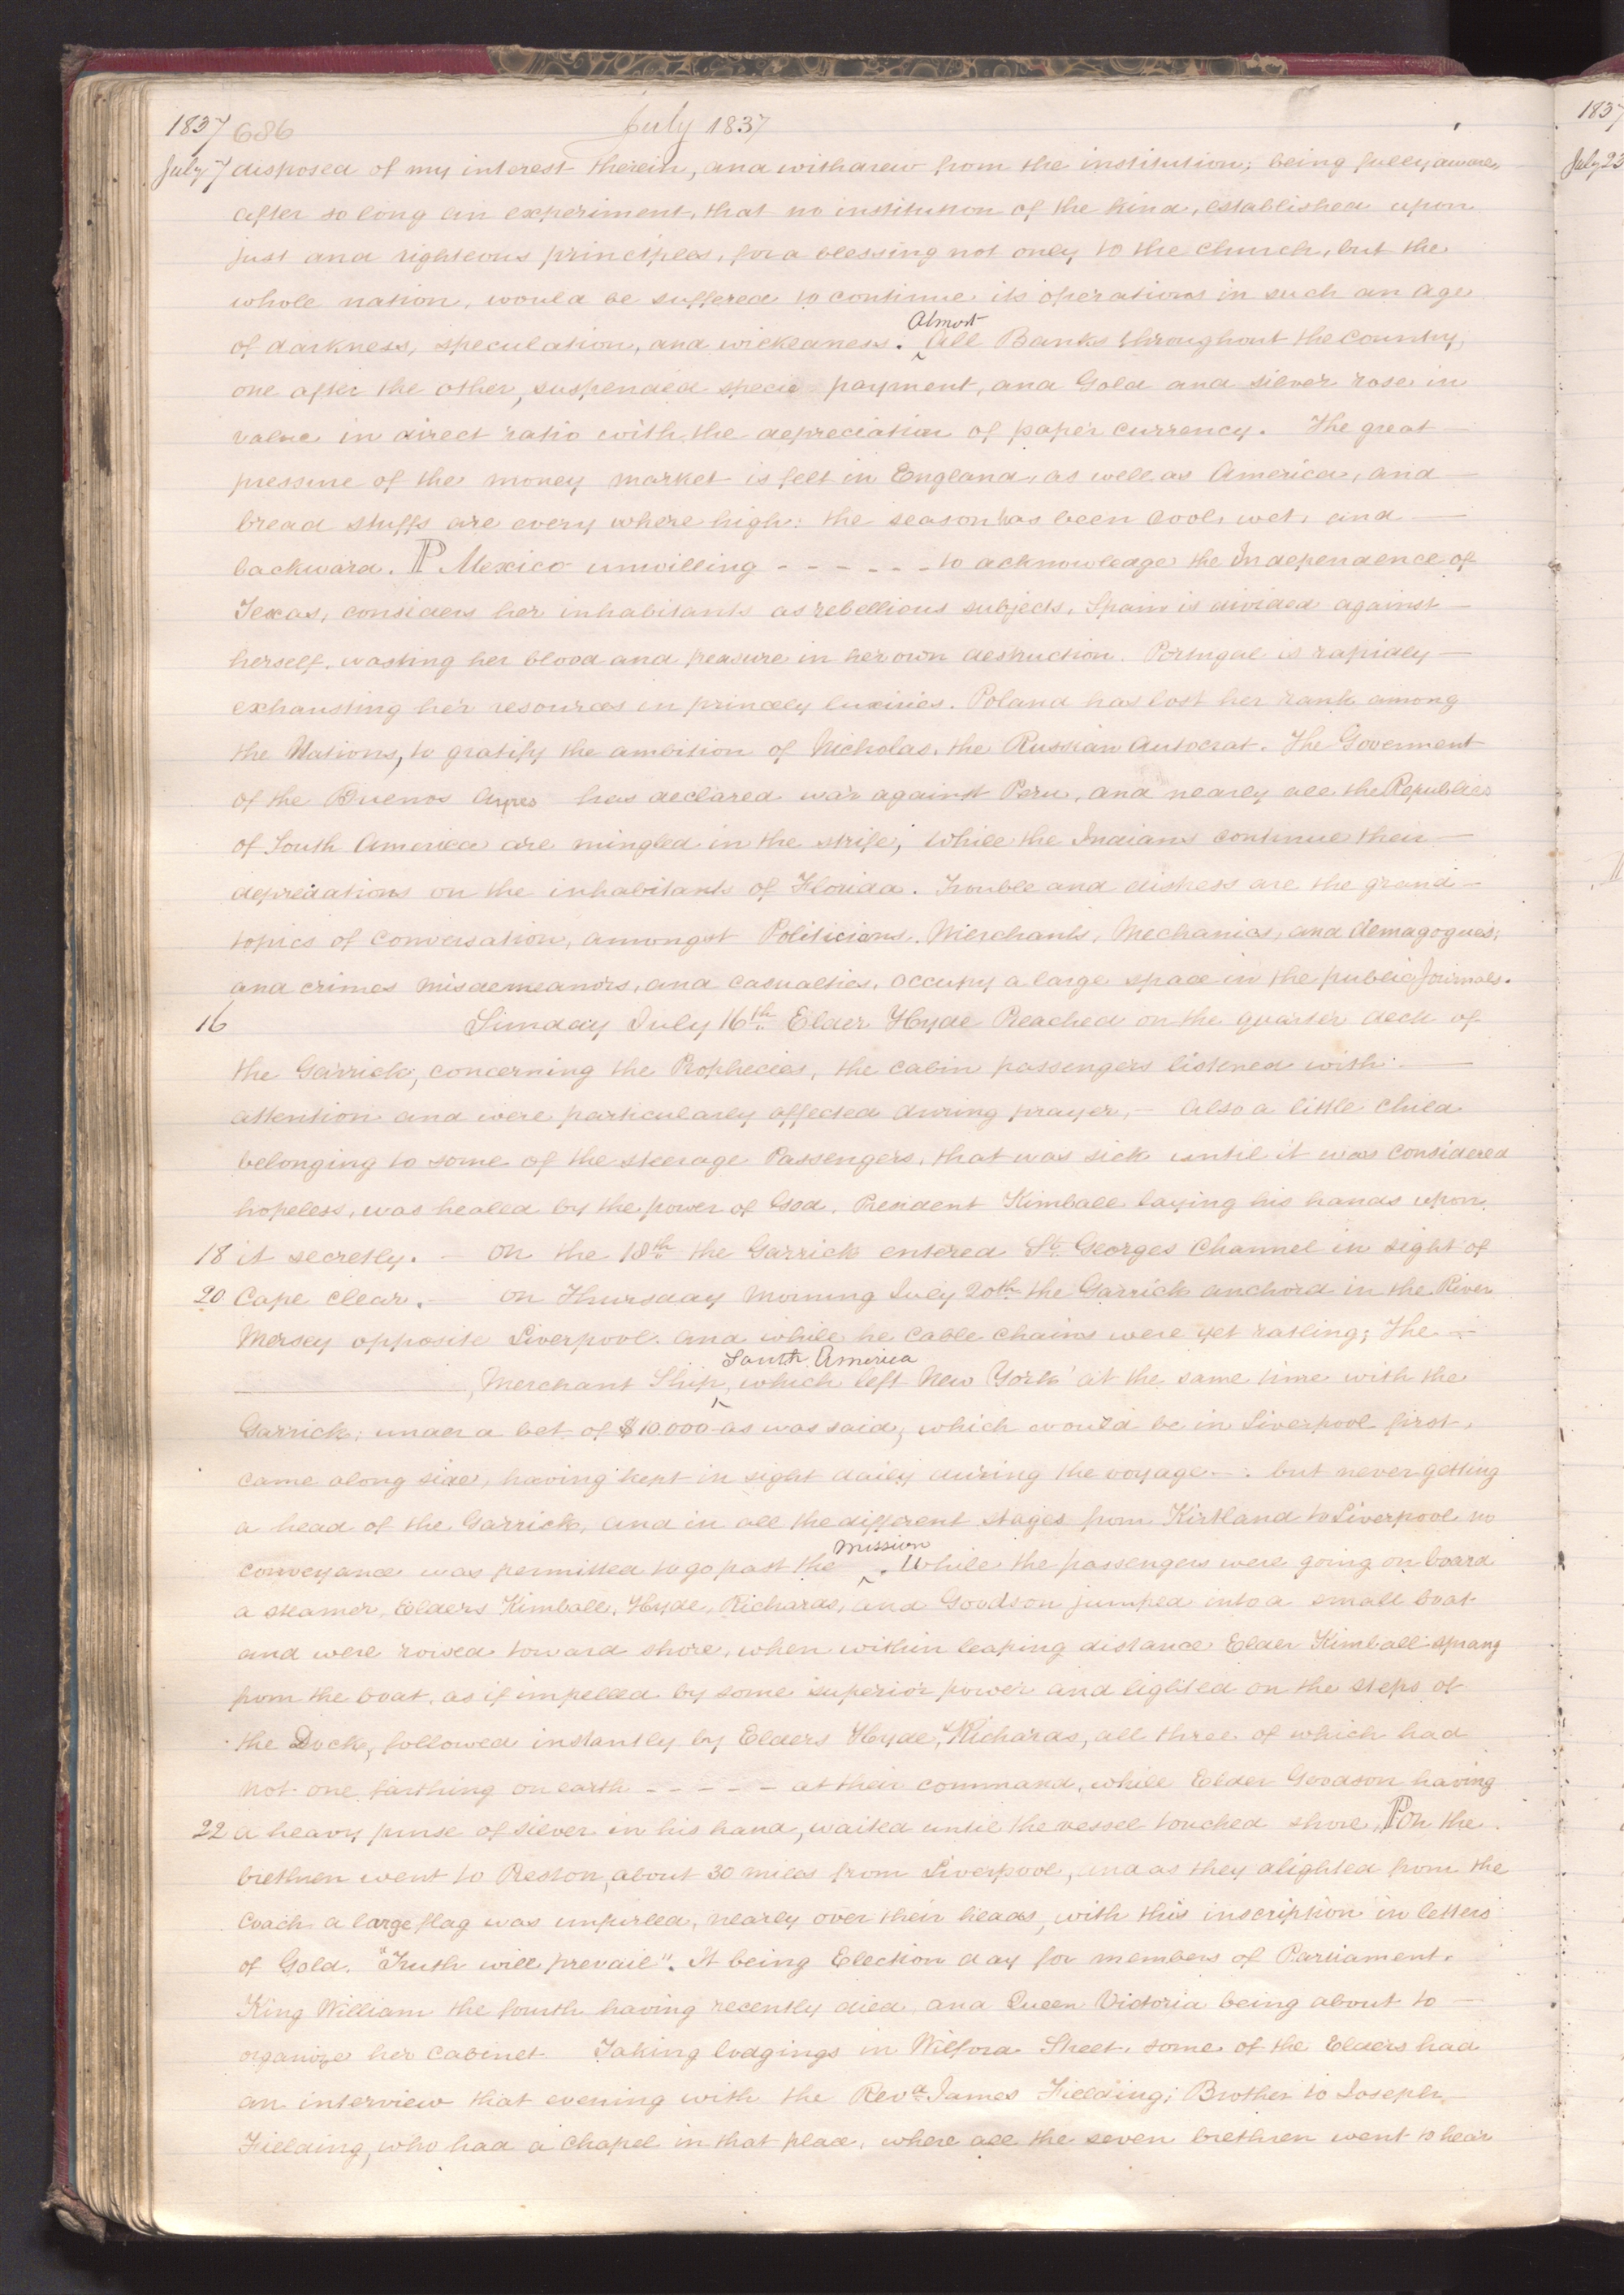 1837 686 July 1837
July 7 disposed of my interest therein, and withdrew from the institution; being fully aware,
after so long an experiment, that no institution of the kind, established upon
just and righteous principles, for a blessing not only to the church, but the
whole nation, would be suffered to continue its operations in such an age
of darkness, speculation, and wickedness. Almost All Banks throughout the country,
one after the other, suspended specie payment, and Gold and silver rose in
value in direct ratio with the depreciation of paper currency. The great —
pressure of the money market is felt in England, as well as America, and —
bread stuffs are every where high: the season has been cool, wet, and —
backward. ¶ Mexico unwilling - - - - - - to acknowledge the Independence of
Texas, considers her inhabitants as rebellious subjects. Spain is divided against —
herself, wasting her blood and treasure in her own destruction. Portugal is rapidly —
exhausting her resources in princely luxiries. Poland has lost her rank among
the Nations, to gratify the ambition of Nicholas, the Russian Autocrat. The Goverment
of the Buenos Ayres has declared war against Peru, and nearly all the Republics
of South America are mingled in the strife; While the Indians continue their —
depredations on the inhabitants of Florida. Trouble and distress are the grand —
topics of conversation, amongst Politicians, Merchants, Mechanics, and demagogues;
and crimes misdemeanors, and casualties, occupy a large space in the public Journals.
16 Sunday July 16th Elder Hyde Preached on the quarter deck of
the Garrick, concerning the Prophecies, the cabin passengers listened with —
attention and were particularly affected during prayer, — Also a little child
belonging to some of the steerage Passengers, that was sick until it was considered
hopeless, was healed by the power of God, President Kimball laying his hands upon
18 it secretly. — On the 18th the Garrick entered St Georges Channel in sight of
20 Cape Clear. — on Thursday Morning July 20th the Garrick anchord in the River
Mersey opposite Liverpool. and while he cable chains were yet ratling; The —
Merchant Ship, South America which left New York at the same time with the
Garrick; under a bet of $10.000 as was said, which would be in Liverpool first,
came along side, having kept in sight daily during the voyage —. but never getting
a head of the Garrick, and in all the different stages from Kirtland to Liverpool no
conveyance was permitted to go past the mission. While the passengers were going on board
a steamer, Elders Kimball, Hyde, Richards, and Goodson jumped into a small boat
and were rowed toward shore, when within leaping distance Elder Kimball sprang
from the boat, as if impelled by some superior power and lighted on the steps of
the Dock, followed instantly by Elders Hyde, & Richards, all three of which had
not one farthing on earth - - - - - at their command, while Elder Goodson having
22 a heavy purse of silver in his hand, waited until the vessel touched shore, ¶ On the
brethren went to Preston, about 30 miles from Liverpool, and as they alighted from the
Coach a large flag was unfurled, nearly over their heads, with this inscription in letters
of Gold. "Truth will prevail". It being Election day for members of Parliament.
King William the fourth having recently died and Queen Victoria being about to —
organize her cabinet Taking lodgings in Wilford Street, some of the Elders had
an interview that evening with the Revd James Fielding; Brother to Joseph —
Fielding, who had a chapel in that place, where all the seven brethren went to hear
1837
July 23